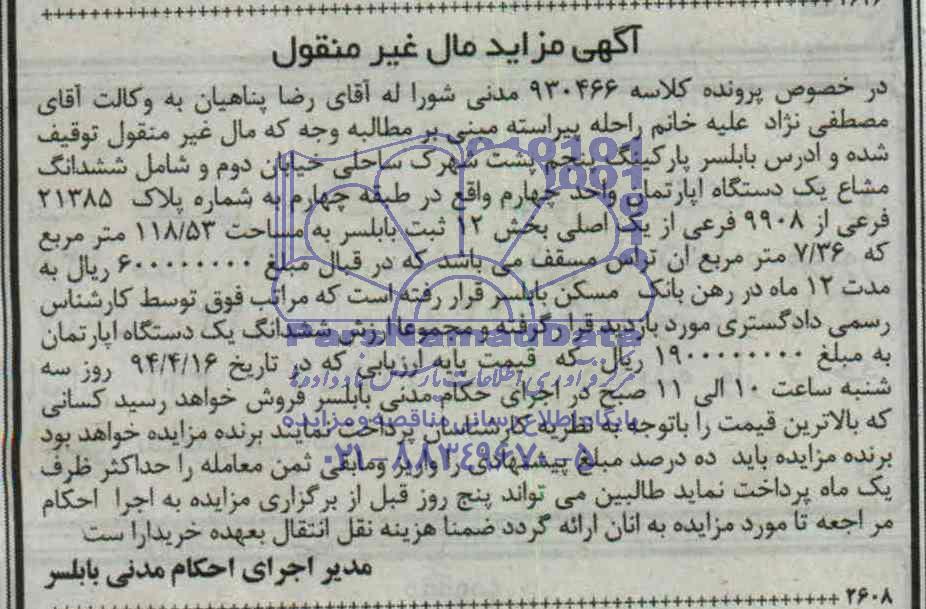 آگهی مزاید مال غیر منقول
در خصوص پرونده کلاسه ۹۳۰۴۶۶ مدنی شورا له آقای رضا پناهیان به وکالت آقای
مصطفی نژاد علیه خانم راحله پیراسته مبنی بر مطالبه وجه که مال غیر منقول توقیف
شده و ادرس بابلسر پارکینگ پنجم پشت شهرک ساحلی خیابان دوم و شامل ششدانگ
مشاع یک دستگاه اپارتمان واحد چهارم واقع در طبقه چهارم به شماره پلاک ۲۱۳۸۵
فرعی از ۹۹۰۸ فرعی از یک اصلی بخش ۱۲ ثبت بابلسر به مساحت ۱۱۸/۵۳ متر مربع
که ۷/۳۶ متر مربع ان تراس مسقف می باشد که در قبال مبلغ ۶۰۰۰۰۰۰۰۰ ریال به
مدت ۱۲ ماه در رهن بانک مسکن بابلسر قرار رفته است که مراتب فوق توسط کارشناس
رسمی دادگستری مورد بازدید قرار گرفته و مجموعا ارزش ششدانگ یک دستگاه اپارتمان
به مبلغ ۱۹۰۰۰۰۰۰۰۰ ریال که قیمت پایه ارزیابی که در تاریخ ۹۴/۴/۱۶ روز سه
شنبه ساعت ۱۰ الی ۱۱ صبح در اجرای حکام مدنی بابلسر فروش خواهد رسید کسانی
که بالاترین قیمت را باتوجه به نظریه کارشناسان پرداخت نمایند برنده مزایده خواهد بود
برنده مزایده باید ده درصد مبلغ پیشنهادی را واریز ومابقی ثمن معامله را حداکثر ظرف
یک ماه پرداخت نماید طالبین می تواند پنج روز قبل از برگزاری مزایده به اجرا احکام
مراجعه تا مورد مزایده به انان ارائه گردد ضمنا هزینه نقل انتقال بعهده خریدارا ست
مدیر اجرای احکام مدنی بابلسر
۲۶۰۸
ParsNamadData
مرکز فرآوری اطلاعات پارس نماد داده ها
پایگاه اطلاع رسانی مناقصه و مزایده
۰۲۱-۸۸۳۴۹۶۷۰-۵